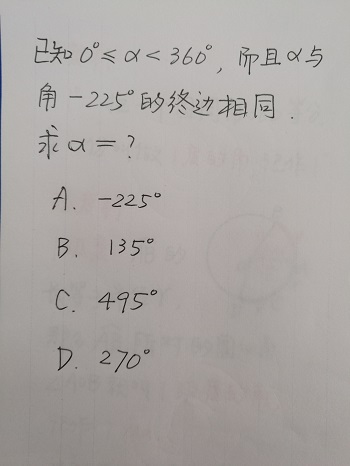 已知 0°≤α<360°, 而且α与
角 -225°的终边相同.
求α=?
A. -225°
B. 135°
C. 495°
D. 270°